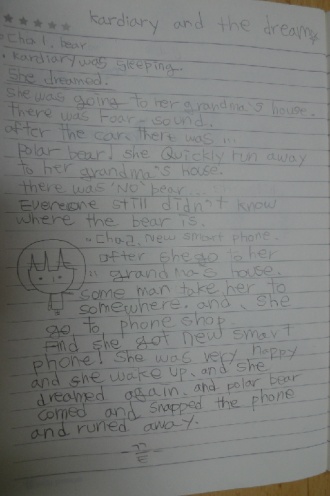 ★★★★★ Kardiary and the dream
Cha 1. bear
Kardiary was sleeping.
She dreamed.
She was going to her grandma's house.
there was roar sound.
after the car. There was ...
Polar bear! she Quickly run away
to her grandma's house.
there was "NO" bear...
Evereone still didn't know
where the bear is.
"Cha2. New smart phone.
after she go to her
grandma's house.
some man take her to
somewhere. and, she
go to phone shop
And she got new smart
phone! She was very happy
and she wake up. and she
dreamed again. and polar bear
comed and snapped the phone
and runed away.
끝